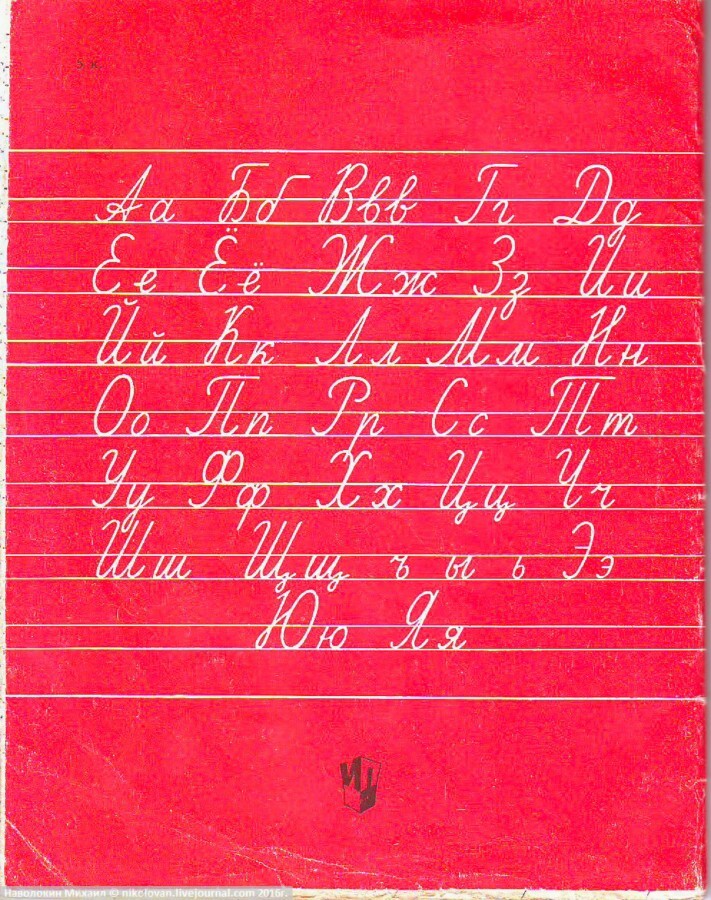 5 к.
Аа Бб Ввв Гг Дд
Ее Ёё Жж Зз Ии
Йй Кк Лл Мм Нн
Оо Пп Рр Сс Тт
Уу Фф Хх Цц Чч
Шш Щщ ъ ы ь Ээ
Юю Яя
Наволокин Михаил © nikolovan.livejournal.com 2016г.